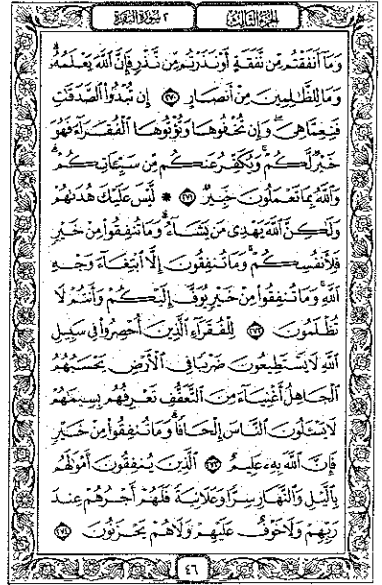 الجزء الثالث
٢ سورة البقرة
وَمَآ أَنفَقْتُم مِّن نَّفَقَةٍ أَوْ نَذَرْتُم مِّن نَّذْرٍ فَإِنَّ ٱللَّهَ يَعْلَمُهُۥ
وَمَا لِلظَّٰلِمِينَ مِنْ أَنصَارٍ ٢٧٠ إِن تُبْدُوا۟ ٱلصَّدَقَٰتِ
فَنِعِمَّا هِىَ ۖ وَإِن تُخْفُوهَا وَتُؤْتُوهَا ٱلْفُقَرَآءَ فَهُوَ
خَيْرٌ لَّكُمْ ۚ وَيُكَفِّرُ عَنكُم مِّن سَيِّـَٔاتِكُمْ ۗ
وَٱللَّهُ بِمَا تَعْمَلُونَ خَبِيرٌ ٢٧١ ۞ لَّيْسَ عَلَيْكَ هُدَىٰهُمْ
وَلَٰكِنَّ ٱللَّهَ يَهْدِى مَن يَشَآءُ ۗ وَمَا تُنفِقُوا۟ مِنْ خَيْرٍ
فَلِأَنفُسِكُمْ ۚ وَمَا تُنفِقُونَ إِلَّا ٱبْتِغَآءَ وَجْهِ
ٱللَّهِ ۚ وَمَا تُنفِقُوا۟ مِنْ خَيْرٍ يُوَفَّ إِلَيْكُمْ وَأَنتُمْ لَا
تُظْلَمُونَ ٢٧٢ لِلْفُقَرَآءِ ٱلَّذِينَ أُحْصِرُوا۟ فِى سَبِيلِ
ٱللَّهِ لَا يَسْتَطِيعُونَ ضَرْبًا فِى ٱلْأَرْضِ يَحْسَبُهُمُ
ٱلْجَاهِلُ أَغْنِيَآءَ مِنَ ٱلتَّعَفُّفِ تَعْرِفُهُم بِسِيمَٰهُمْ
لَا يَسْـَٔلُونَ ٱلنَّاسَ إِلْحَافًا ۗ وَمَا تُنفِقُوا۟ مِنْ خَيْرٍ
فَإِنَّ ٱللَّهَ بِهِۦ عَلِيمٌ ٢٧٣ ٱلَّذِينَ يُنفِقُونَ أَمْوَٰلَهُم
بِٱلَّيْلِ وَٱلنَّهَارِ سِرًّا وَعَلَانِيَةً فَلَهُمْ أَجْرُهُمْ عِندَ
رَبِّهِمْ وَلَا خَوْفٌ عَلَيْهِمْ وَلَا هُمْ يَحْزَنُونَ ٢٧٤
٤٦